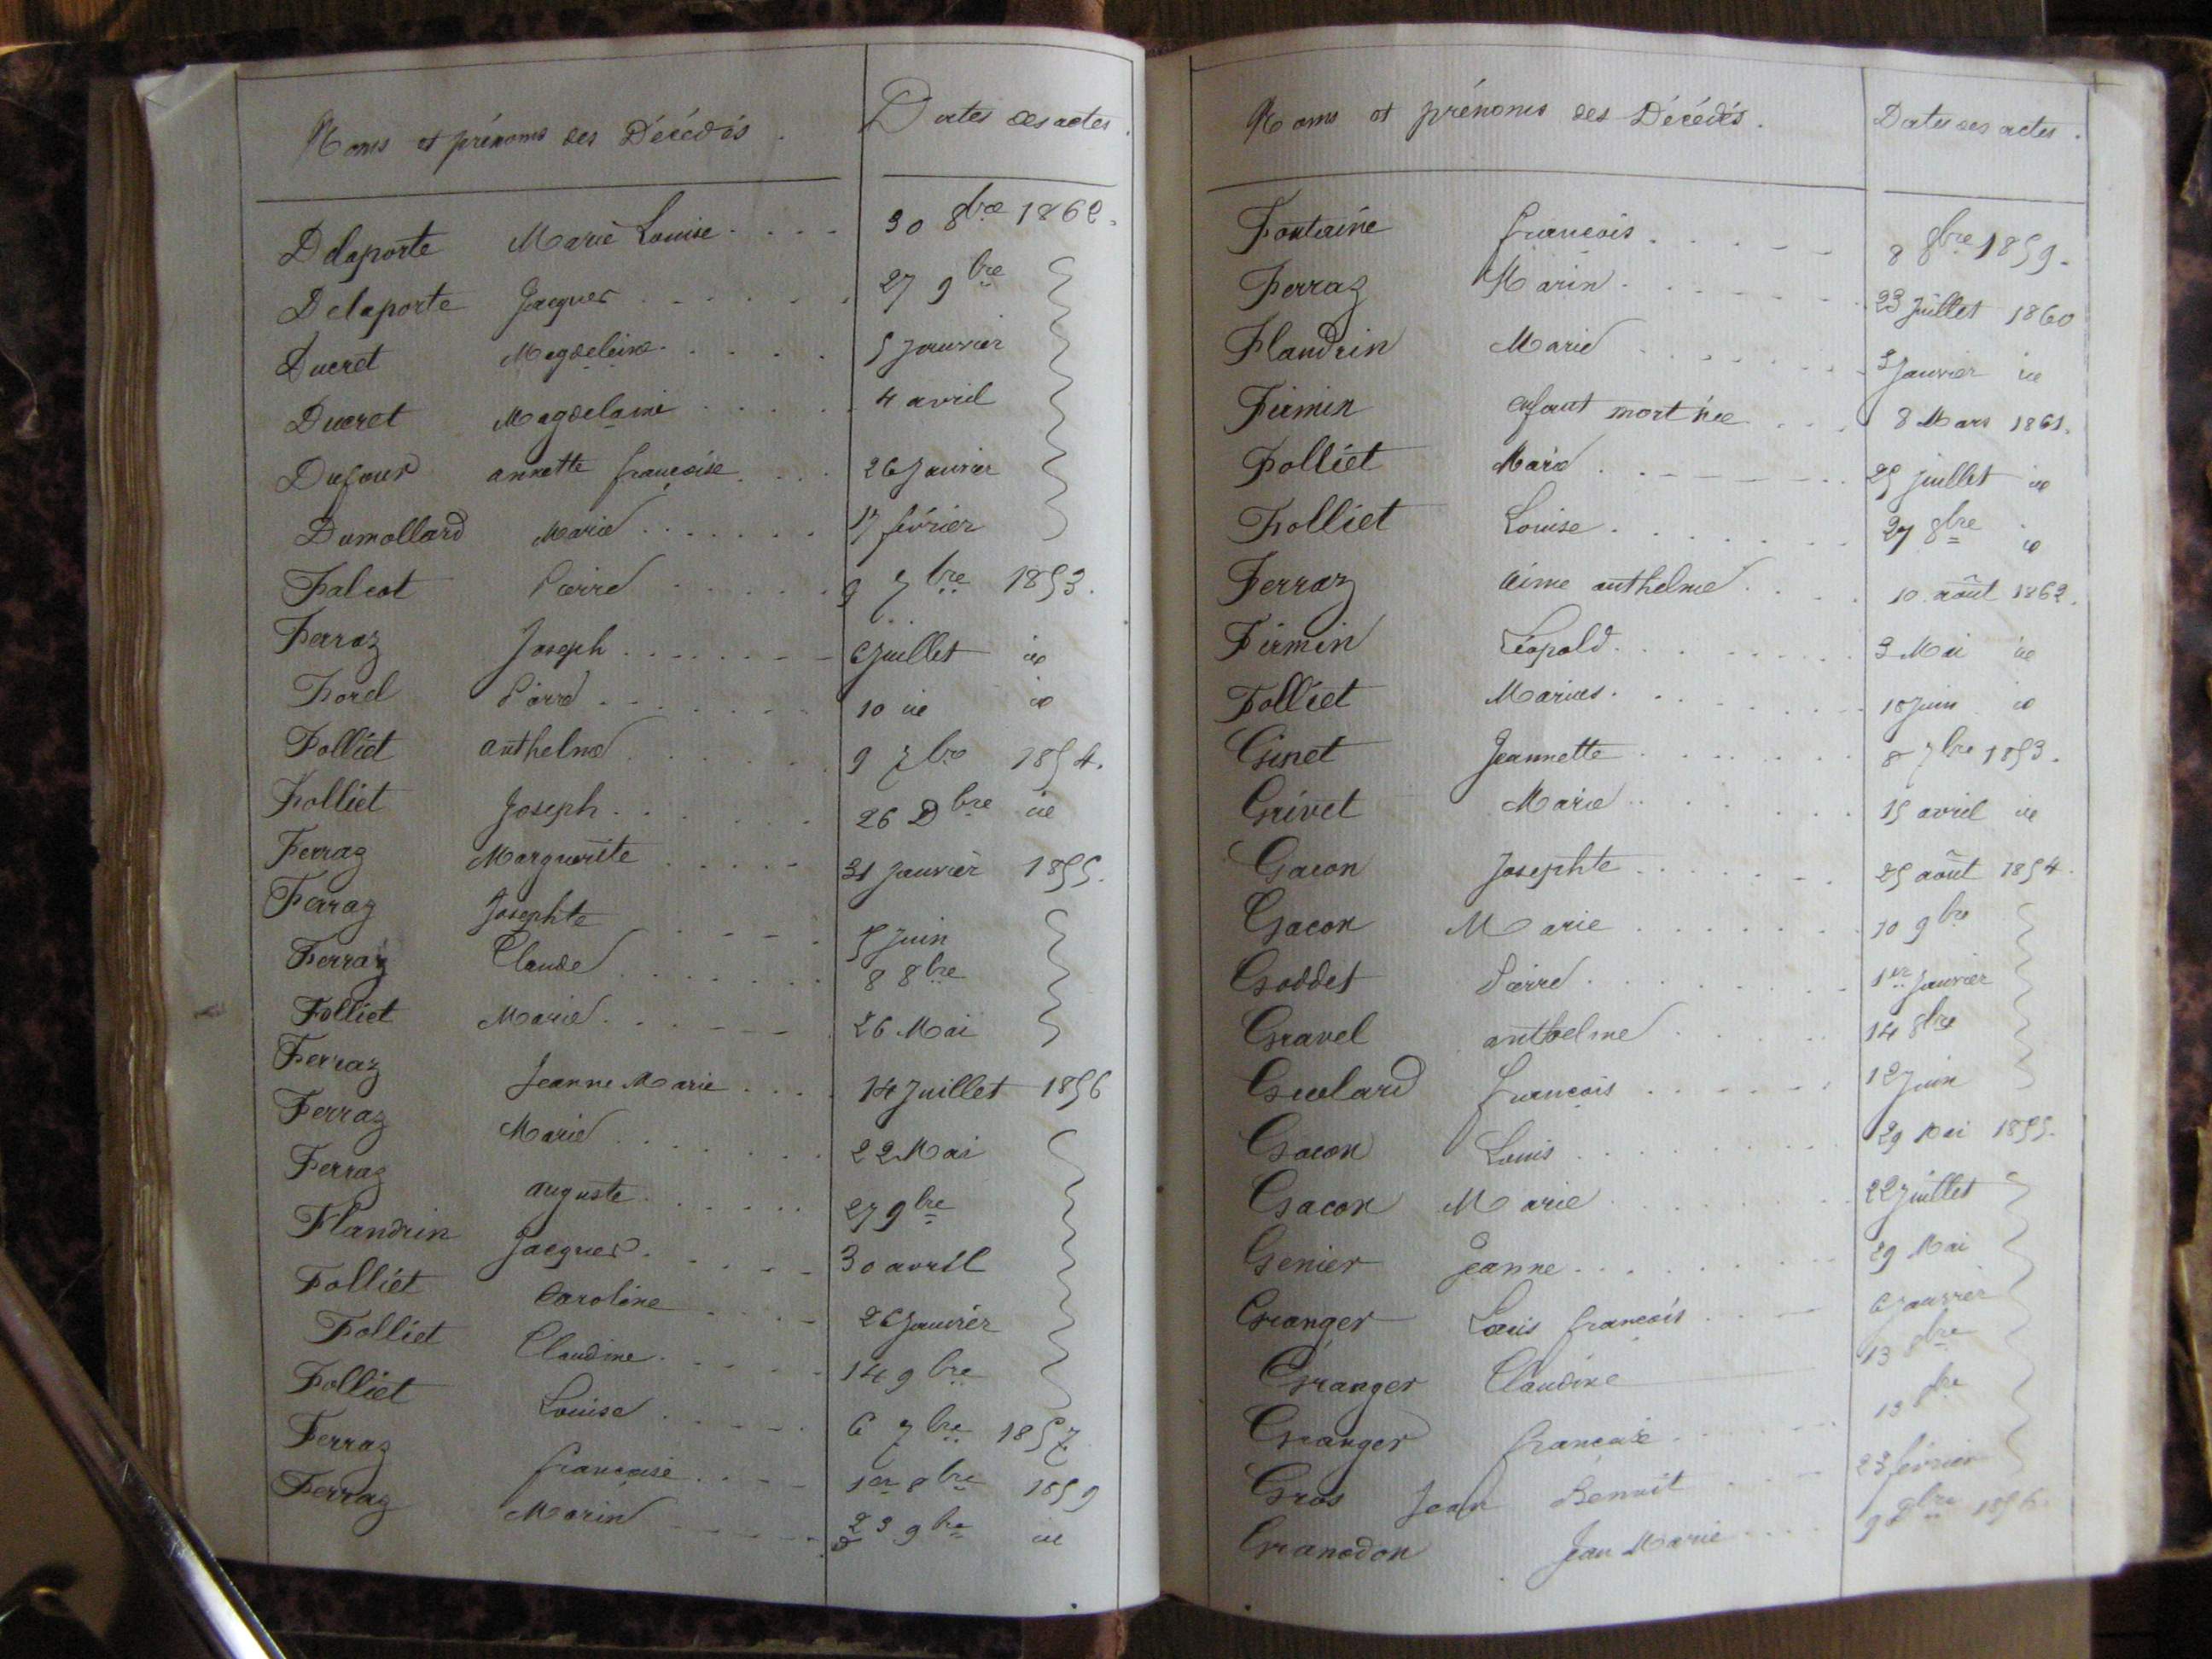 Noms et prénoms des Décédés. Dates des actes.
Delaporte Marie Louise 30 8bre 1862.
Delaporte Jacques 27 9bre
Ducret Magdeleine 5 Janvier
Ducret Magdelaine 4 avril
Dufour annette françoise 26 Janvier
Dumollard Marie 17 février
Falcot Pierre 9 7bre 1853.
Ferraz Joseph 6 Juillet id
Forel Pierre 10 id id
Folliet anthelme 9 7bre 1854.
Folliet Joseph 26 Dbre id
Ferraz Marguerite 31 Janvier 1855.
Ferraz Josephte 5 Juin
Ferraz Claude 8 8bre
Folliet Marie 26 Mai
Ferraz Jeanne Marie 14 Juillet 1856
Ferraz Marie 22 Mai
Ferraz auguste 27 9bre
Flandrin Jacques 30 avril
Folliet Caroline 26 Janvier
Folliet Claudine 14 9bre
Folliet Louise 6 7bre 1857
Ferraz françoise 1er 8bre 1859
Ferraz Marin 23 9bre id
Noms et prénoms des Décédés. Dates des actes.
Fontaine françois 8 8bre 1859.
Ferraz Marin 23 Juillet 1860
Flandrin Marie Janvier id
Firmin enfant mort née 8 Mars 1861.
Folliet Marie 25 juillet id
Folliet Louise 27 8bre id
Ferraz aime anthelme 10 août 1862.
Firmin Léopold 3 Mai id
Folliet Marius 18 Juin id
Ginet Jeannette 8 7bre 1853.
Grivet Marie 15 avril id
Gacon Josephte 25 août 1854.
Gacon Marie 10 9bre
Goddet Pierre 1er Janvier
Gravel anthelme 14 8bre
Guelard françois 12 Juin
Gacon Louis 29 Mai 1855.
Gacon Marie 22 Juillet
Genier Jeanne 29 Mai
Granger Louis françois 6 Janvier
Granger Claudine 13 8bre
Granger françoise 13 8bre
Gros Jean Benoit 23 février
Granodon Jean Marie 9 1856.